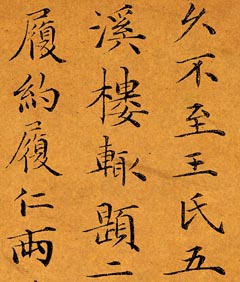 久不至王氏五
溪樓輙題二
履約履仁兩